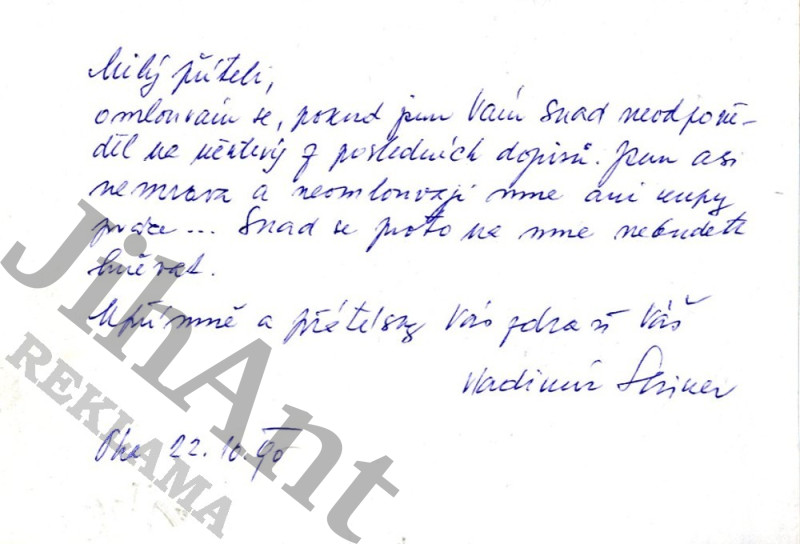 Milý příteli,
omlouvám se, pokud jsem Vám snad neodpově-
děl na některý z posledních dopisů. Jsem asi
nemrava a neomlouvají mne ani kupy
práce ... Snad se proto na mne nebudete
hněvat.
Upřímně a přátelsky Vás zdraví Váš
Vladimír
Pha 22. 10. 90
JihAnt
REKLAMA